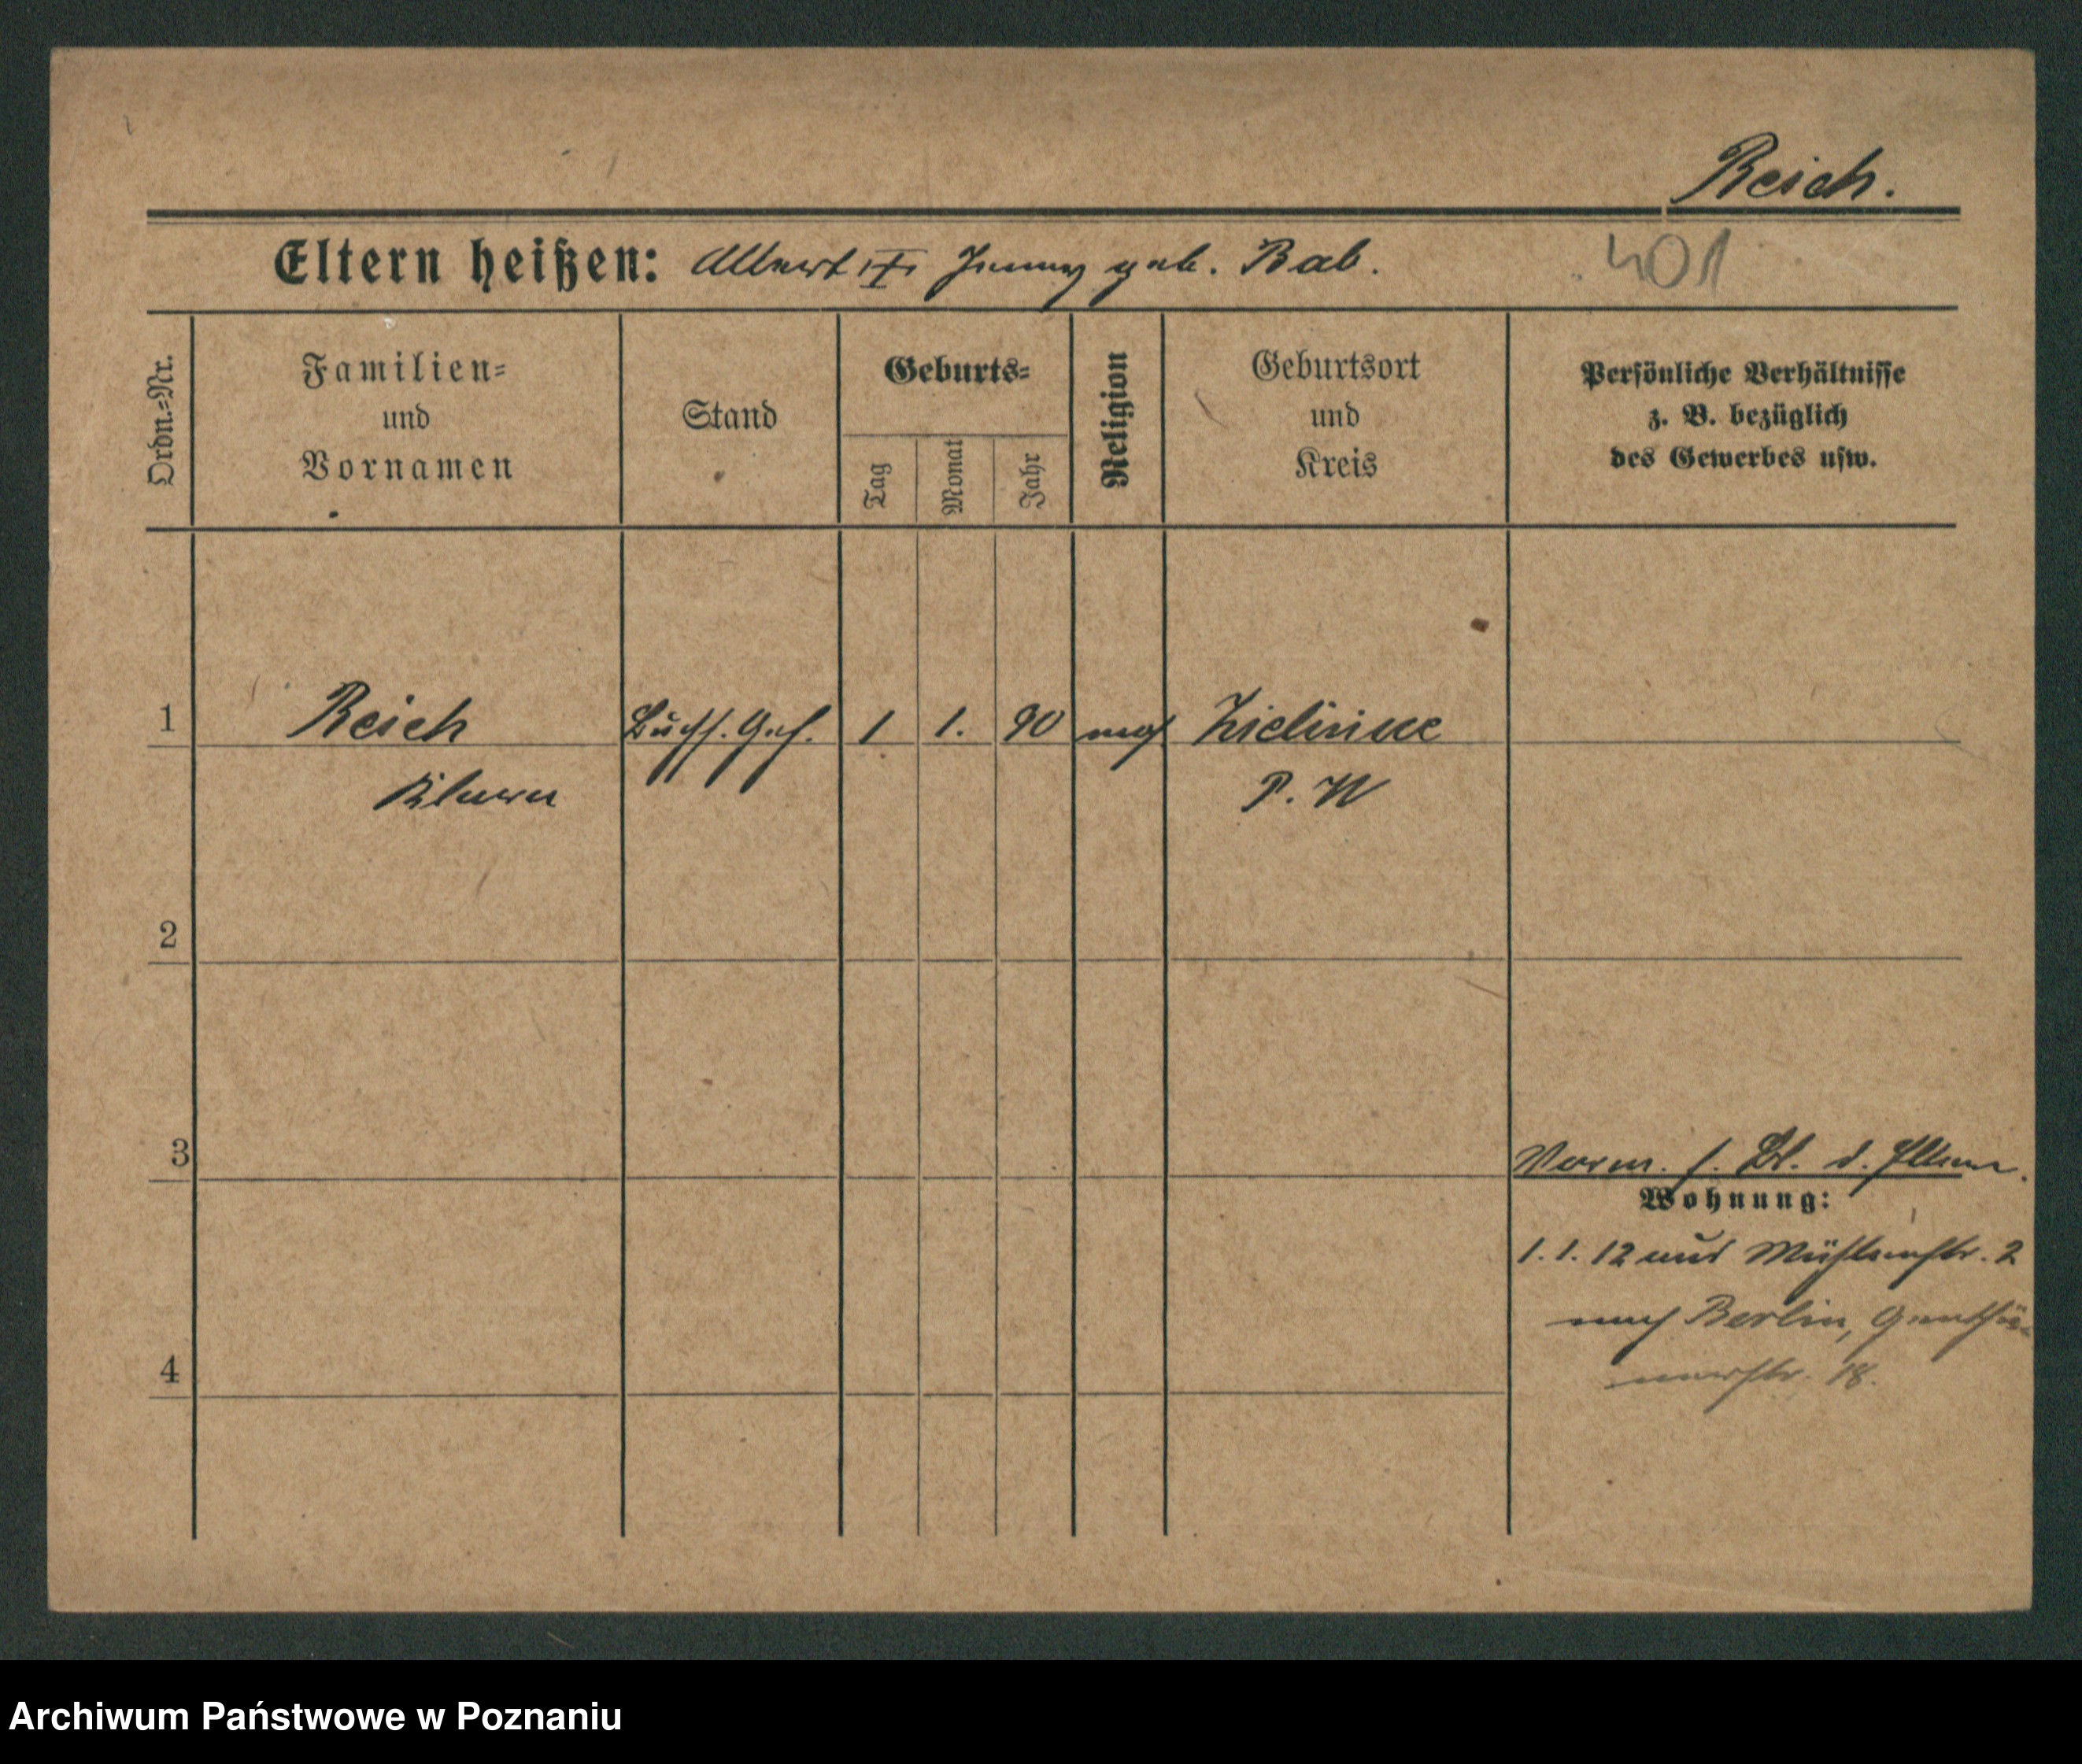 Reich.
Eltern heißen: Albert Jenny geb. Bab.
401
Ordn.=Nr.
Familien=
und
Vornamen
Stand
Geburts=
Tag
Monat
Jahr
Religion
Geburtsort
und
Kreis
Persönliche Verhältnisse
z. B. bezüglich
des Gewerbes usw.
1 Reich Buchh. Geh. 1 1. 90 mos Zielinice
P. W
2
3
Verm. s. Bl. d.
Wohnung:
1.1.12 aus Mühlenstr. 2
nach Berlin, Genthi=
nerstr. 18.
4
Archiwum Państwowe w Poznaniu